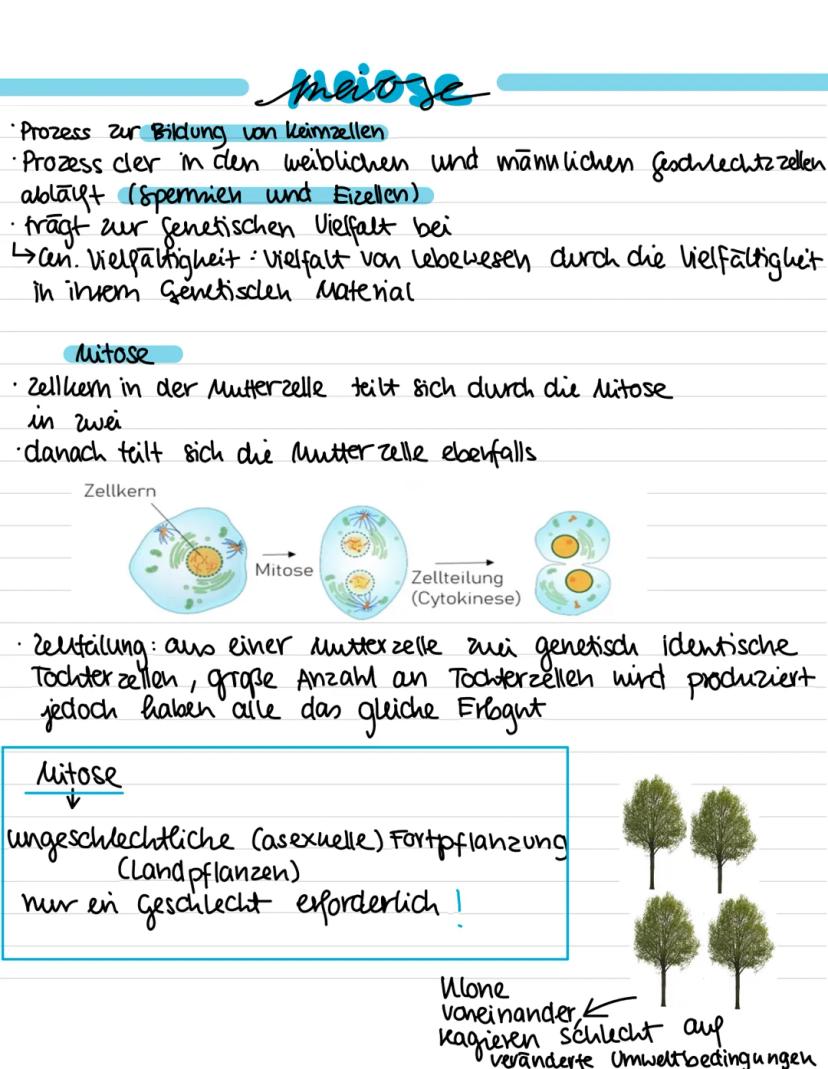 meiose
· Prozess zur Bildung von Keimzellen
· Prozess der in den weiblichen und männlichen Geschlechtszellen
abläuft (Spermien und Eizellen)
· trägt zur genetischen Vielfalt bei
↳ Gen. Vielfältigkeit : Vielfalt von Lebewesen durch die Vielfältigkeit
in ihrem Genetischen Material
Mitose
· Zellkern in der Mutterzelle teilt sich durch die Mitose
in zwei
· danach teilt sich die Mutterzelle ebenfalls
Zellkern
Mitose
Zellteilung
(Cytokinese)
· Zellteilung: aus einer Mutterzelle zwei genetisch identische
Tochterzellen, große Anzahl an Tochterzellen wird produziert
jedoch haben alle das gleiche Erbgut
Mitose
↓
ungeschlechtliche (asexuelle) Fortpflanzung
(Landpflanzen)
nur ein Geschlecht erforderlich !
Klone
voneinander,
reagieren schlecht auf
veränderte Umweltbedingungen